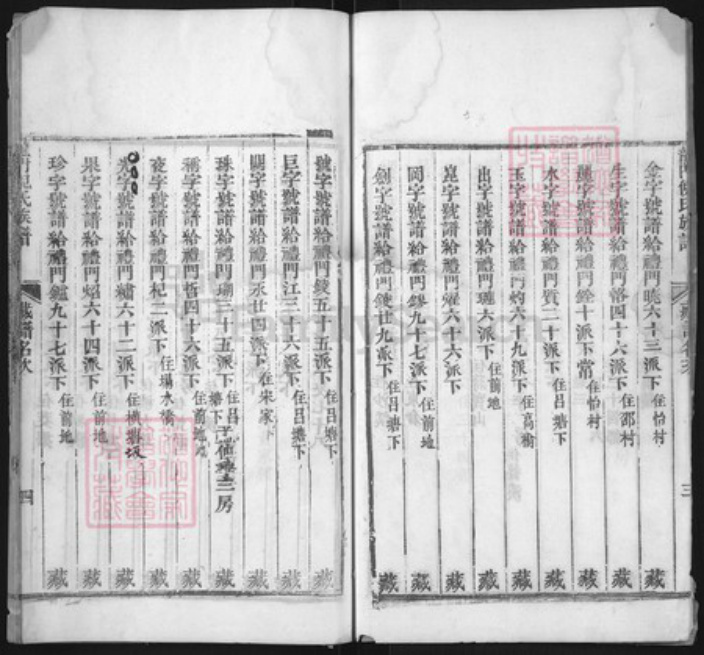 金字號譜給禮門曉六十三派下住怡村 藏
生字號譜給禮門洛四十六派下住邵村 藏
麗字號譜給禮門銓十派下常住怡村 藏
水字號譜給禮門質二十派下住呂塘下 藏
玉字號譜給禮門灼六十九派下住高橋 藏
出字號譜給禮門璉六派下住前地 藏
崑字號譜給禮門燿六十六派下 藏
岡字號譜給禮門錂九十七派下住前地 藏
劍字號譜給禮門錂廿九派下住呂塘下 藏
三
號字號譜給禮門錂五十五派下住呂塘下 藏
巨字號譜給禮門江三十六派下住呂塘下 藏
闕字號譜給禮門永廿四派下住宋家 藏
珠字號譜給禮門瑚三十五派下住呂塘下 三房 藏
稱字號譜給禮門哲四十六派下住前地 藏
夜字號譜給禮門杞二派下住場水橋 藏
光字號譜給禮門繡六十二派下住橫塘坂 藏
果字號譜給禮門炤六十四派下住前地 藏
珍字號譜給禮門鑑九十七派下住前地
氏族譜
藏譜名次
四